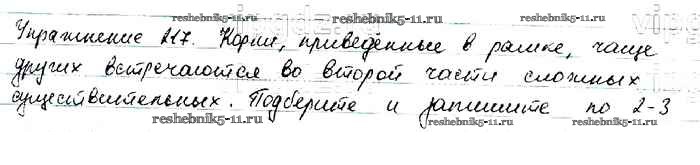 reshebnik5-11.ru reshebnik5-11.ru
Упражнение 217. Корни, приведённые в рамке, чаще
других встречаются во второй части сложных
существительных. Подберите и запишите по 2-3
reshebnik5-11.ru reshebnik5-11.ru